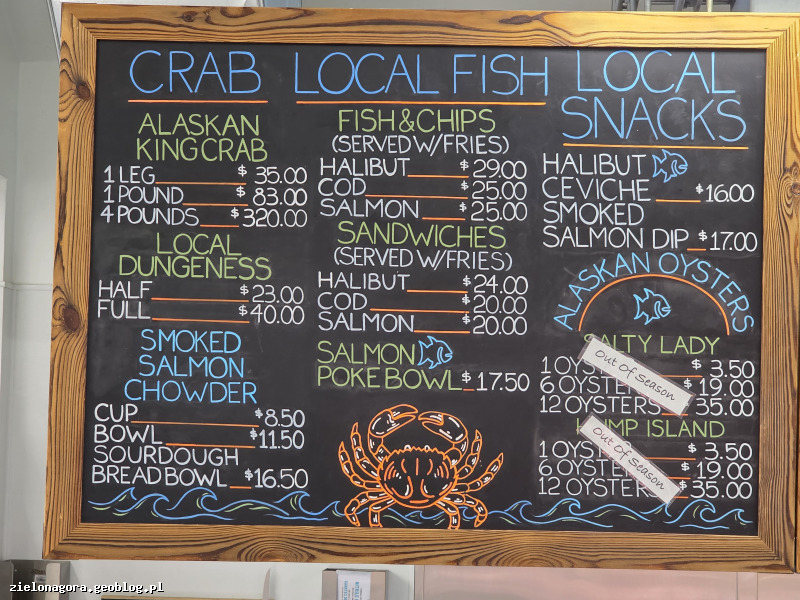 CRAB
ALASKAN
KING CRAB
1 LEG $35.00
1 POUND $83.00
4 POUNDS $320.00
LOCAL
DUNGENESS
HALF $23.00
FULL $40.00
SMOKED
SALMON
CHOWDER
CUP $8.50
BOWL $11.50
SOURDOUGH
BREAD BOWL $16.50
LOCAL FISH
FISH & CHIPS
(SERVED W/FRIES)
HALIBUT $29.00
COD $25.00
SALMON $25.00
SANDWICHES
(SERVED W/FRIES)
HALIBUT $24.00
COD $20.00
SALMON $20.00
SALMON
POKE BOWL $17.50
LOCAL
SNACKS
HALIBUT
CEVICHE $16.00
SMOKED
SALMON DIP $17.00
ALASKAN OYSTERS
SALTY LADY
1 OYS $3.50
6 OYSTE $19.00
12 OYSTERS $35.00
Out of Season
UMP ISLAND
1 OYST $3.50
6 OYSTE $19.00
12 OYSTER $35.00
Out of Season
zielonagora.geoblog.pl